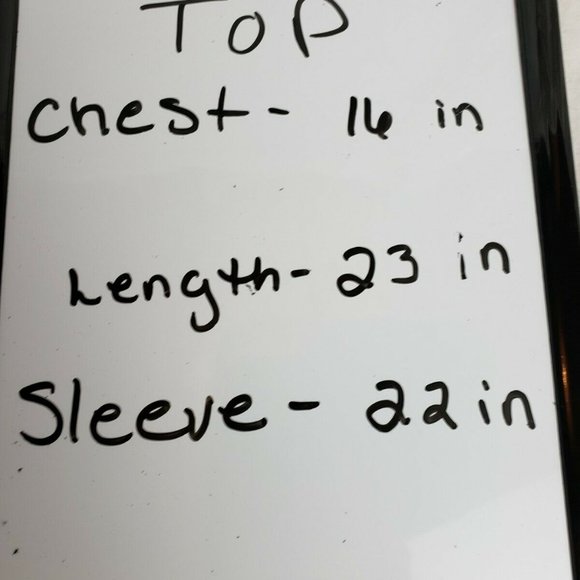 TOP
Chest - 16 in
Length - 23 in
Sleeve - 22 in